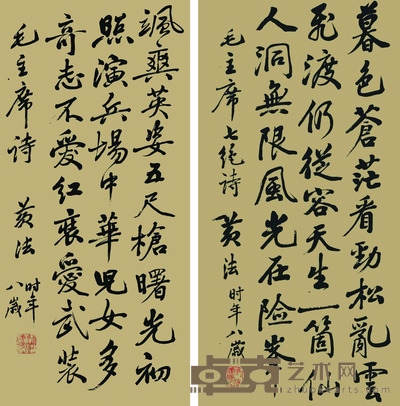 暮色蒼茫看勁松亂雲
飛渡仍從容天生一箇仙
人洞無限風光在险峯
毛主席七絕詩 黄法 时年八歲
颯爽英姿五尺槍曙光初
照演兵場中華兒女多
奇志不愛紅裝愛武裝
毛主席詩 黄法
时年
八歲
艺术网